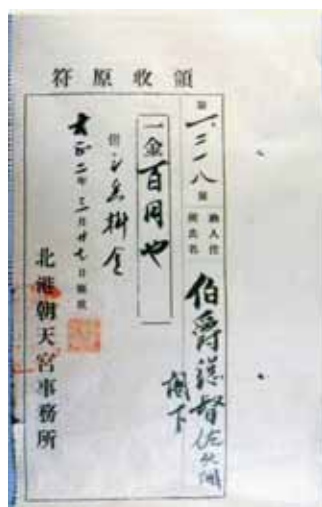 領收原符
第一、三一八號
納人住
所氏名
伯爵總督佐久間
閣下
一金百円也
但
大正二年三月廿七日領收
北港朝天宮事務所